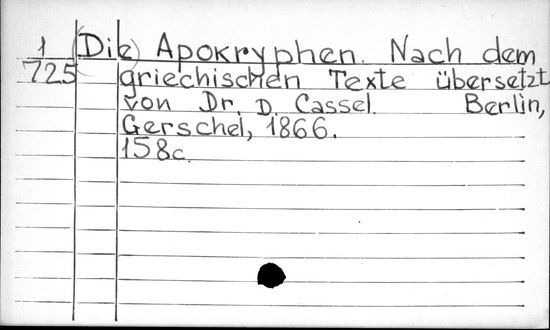 1 (Die) Apokryphen. Nach dem
725 griechischen Texte übersetzt
von Dr. D. Cassel. Berlin,
Gerschel, 1866.
158c.